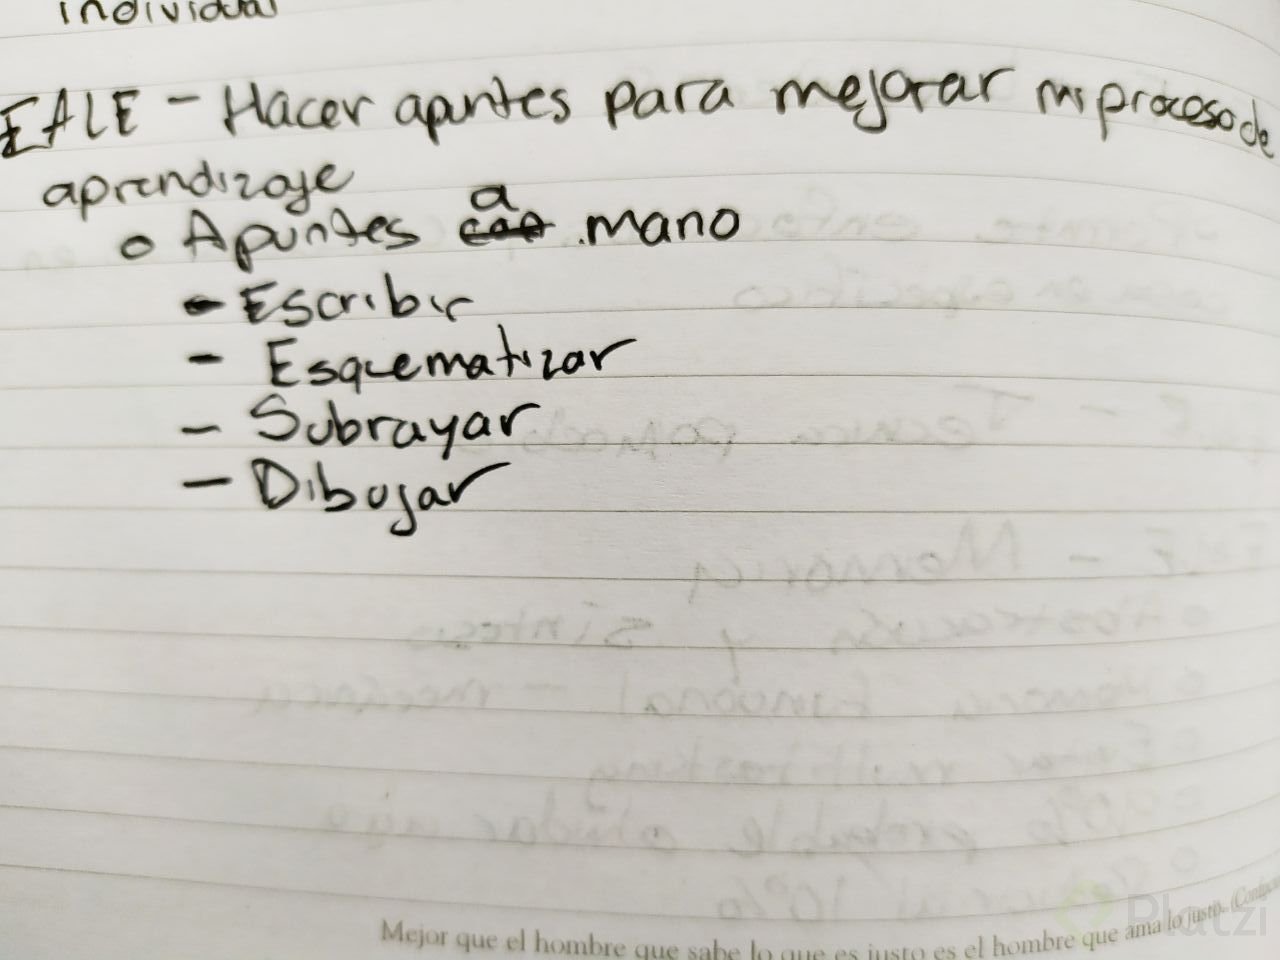 individual
EALE - Hacer apuntes para mejorar mi proceso de
aprendizaje
o Apuntes a mano
- Escribir
- Esquematizar
- Subrayar
- Dibujar
Mejor que el hombre que sabe lo que es justo es el hombre que ama lo justo.
Platzi